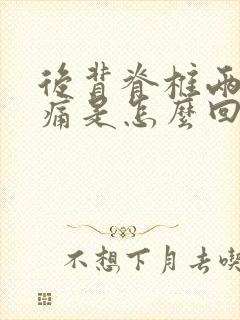 後背脊椎兩
痛是怎麼回
不想下月去喫